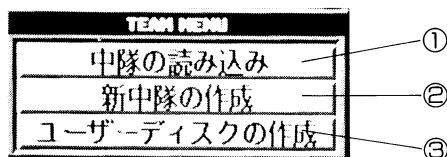 TEAM MENU
中隊の読み込み ①
新中隊の作成 ②
ユーザーディスクの作成 ③